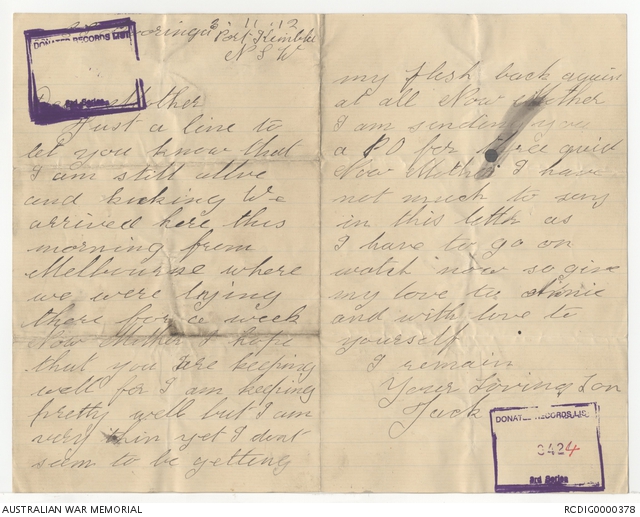 3. 11. 12
Port Kembla
N S W
DONATED RECORDS LIST
Mother
Just a line to
let you know that
I am still alive
and kicking We
arrived here this
morning from
Melbourne where
we were lying
there for a week
Now Mother I hope
that you are keeping
well for I am keeping
pretty well but I am
very thin yet I don't
seem to be getting
my flesh back again
at all Now Mother
I am sending you
a P O for three quid
Now Mother I have
not much to say
in this letter as
I have to go on
watch now so give
my love to Annie
and with love to
yourself
I remain
Your Loving Son
Jack
DONATED RECORDS LIST
3424
AUSTRALIAN WAR MEMORIAL
RCDIG0000378